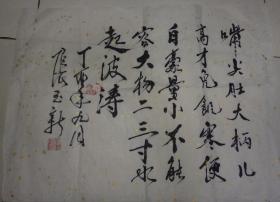 嘴尖肚大柄儿
高才免饥寒便
自豪量小不能
容大物二三寸水
起波涛
丁
年九月
玉新